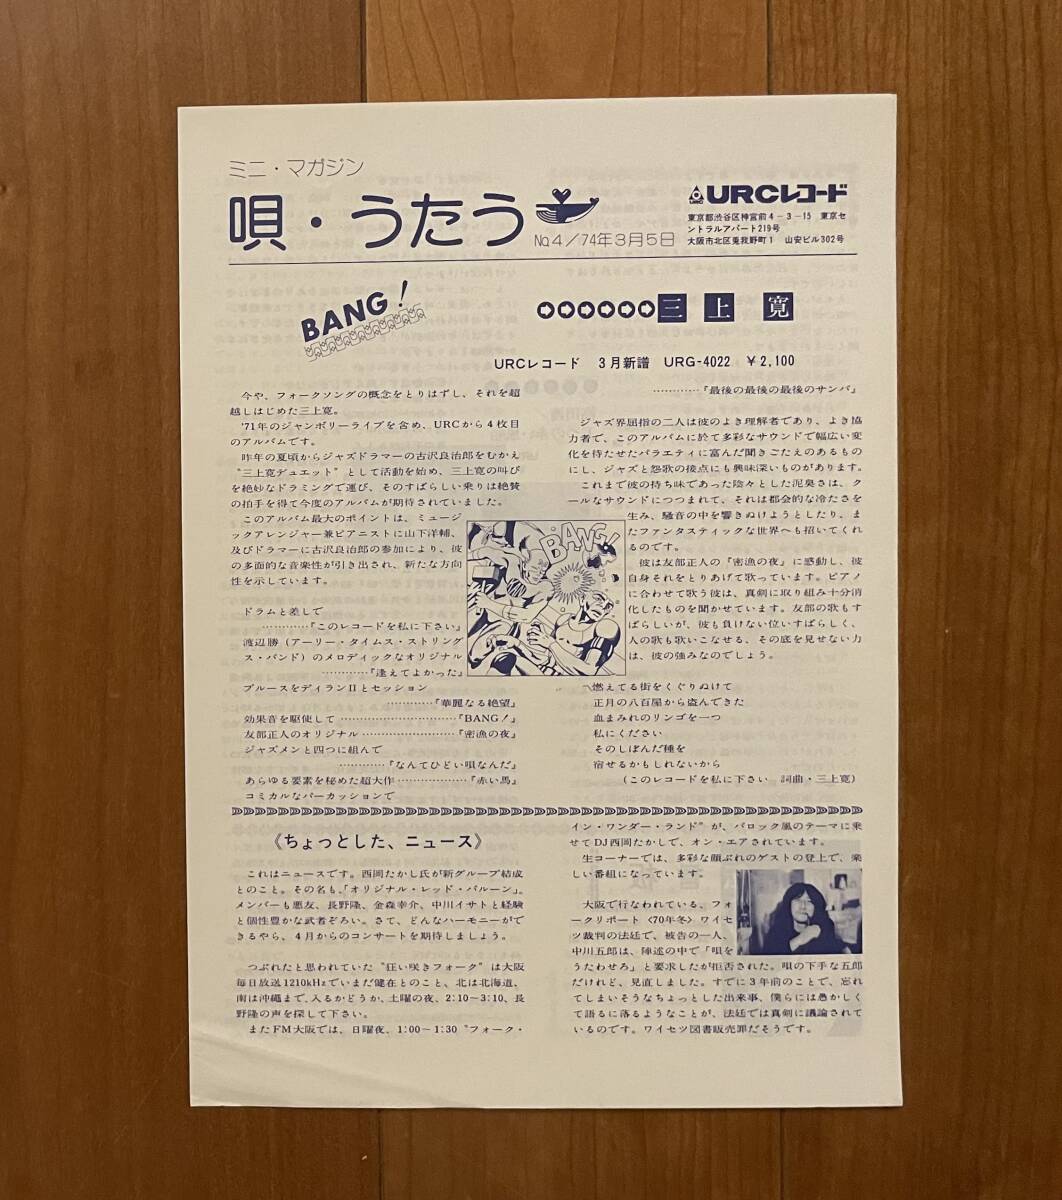 ミニ・マガジン
唄・うたう
No.4／74年3月5日
URCレコード
東京都渋谷区神宮前4－3－15　東京セ
ントラルアパート219号
大阪市北区兎我野町1　山安ビル302号
BANG！
三上寛
URCレコード　3月新譜　URG-4022　￥2,100
今や、フォークソングの概念をとりはずし、それを超
越しはじめた三上寛。
'71年のジャンボリーライブを含め、URCから4枚目
のアルバムです。
昨年の夏頃からジャズドラマーの古沢良治郎をむかえ
“三上寛デュエット”として活動を始め、三上寛の叫び
を絶妙なドラミングで運び、そのすばらしい乗りは絶賛
の拍手を得て今度のアルバムが期待されていました。
このアルバム最大のポイントは、ミュージ
ックアレンジャー兼ピアニストに山下洋輔、
及びドラマーに古沢良治郎の参加により、彼
の多面的な音楽性が引き出され、新たな方向
性を示しています。
ドラムと差しで
…………『このレコードを私に下さい』
渡辺勝（アーリー・タイムス・ストリング
ス・バンド）のメロディックなオリジナル
…………『逢えてよかった』
ブルースをディランIIとセッション
…………『華麗なる絶望』
効果音を駆使して…………………『BANG！』
友部正人のオリジナル……………………『密漁の夜』
ジャズメンと四つに組んで
…………『なんてひどい唄なんだ』
あらゆる要素を秘めた超大作………………『赤い馬』
コミカルなパーカッションで
…………『最後の最後の最後のサンバ』
ジャズ界屈指の二人は彼のよき理解者であり、よき協
力者で、このアルバムに於て多彩なサウンドで幅広い変
化を待たせたバラエティに富んだ聞きごたえのあるもの
にし、ジャズと怨歌の接点にも興味深いものがあります。
これまで彼の持ち味であった陰々とした泥臭さは、ク
ールなサウンドにつつまれて、それは都会的な冷たさを
生み、騒音の中を響きぬけようとしたり、ま
たファンタスティックな世界へも招いてくれ
るのです。
彼は友部正人の『密漁の夜』に感動し、彼
自身それをとりあげて歌っています。ピアノ
に合わせて歌う彼は、真剣に取り組み十分消
化したものを聞かせています。友部の歌もす
ばらしいが、彼も負けない位いすばらしく、
人の歌も歌いこなせる、その底を見せない力
は、彼の強みなのでしょう。
BANG!
〽燃えてる街をくぐりぬけて
正月の八百屋から盗んできた
血まみれのリンゴを一つ
私にください
そのしぼんだ種を
宿せるかもしれないから
（このレコードを私に下さい　詞曲・三上寛）
《ちょっとした、ニュース》
これはニュースです。西岡たかし氏が新グループ結成
とのこと。その名も、「オリジナル・レッド・バルーン」。
メンバーも悪友、長野隆、金森幸介、中川イサトと経験
と個性豊かな武者ぞろい。さて、どんなハーモニーがで
きるやら、4月からのコンサートを期待しましょう。
つぶれたと思われていた“狂い咲きフォーク”は大阪
毎日放送1210kHzでいまだ健在とのこと、北は北海道、
南は沖縄まで、入るかどうか、土曜の夜、2:10～3:10、長
野隆の声を探して下さい。
またFM大阪では、日曜夜、1:00～1:30“フォーク・
イン・ワンダー・ランド”が、バロック風のテーマに乗
せてDJ西岡たかしで、オン・エアされています。
生コーナーでは、多彩な顔ぶれのゲストの登上で、楽
しい番組になっています。
大阪で行なわれている、フォ
ークリポート〈70年冬〉ワイセ
ツ裁判の法廷で、被告の一人、
中川五郎は、陣述の中で「唄を
うたわせろ」と要求したが拒否された。唄の下手な五郎
だけれど、見直しました。すでに3年前のことで、忘れ
てしまいそうなちょっとした出来事、僕らには愚かしく
て語るに落るようなことが、法廷では真剣に議論されて
いるのです。ワイセツ図書販売罪だそうです。